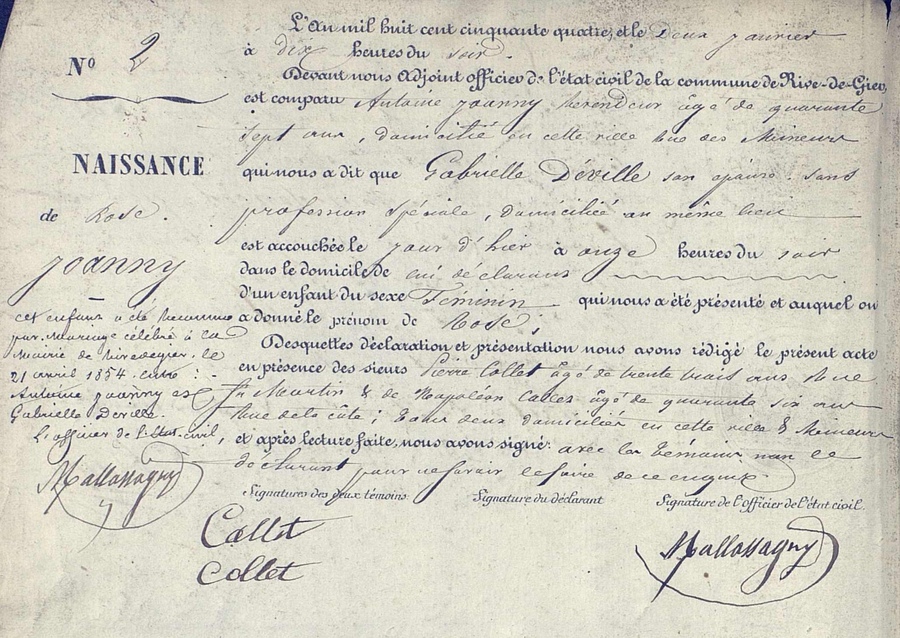 L'An mil huit cent cinquante quatre, et le Deux janvier
à dix heures du soir.
N° 2
Devant nous Adjoint officier de l'état civil de la commune de Rive-de-Gier,
est comparu Antoine Joanny âgé de quarante
Sept ans, domicilié en cette ville Rue des Mineurs
NAISSANCE
qui nous a dit que Gabrielle Déville son épouse sans
de Rose.
profession spéciale, domiciliée au même lieu
Joanny
est accouchée le jour d'hier à onze heures du soir
dans le domicile de lui déclarant
d'un enfant du sexe Féminin qui nous a été présenté et auquel on
a donné le prénom de Rose,
Desquelles déclaration et présentation nous avons rédigé le présent acte
en présence des sieurs Pierre Collet âgé de trente trois ans Rue
St Martin & de Napoléon Collet âgé de quarante six ans
Rue de la côte; tous deux domiciliés en cette ville & Mineurs
et après lecture faite, nous avons signé: avec les témoins non le
déclarant pour ne savoir le faire de ce enquis.
cet enfant a été reconnu
par mariage célébré à la
Mairie de Rivedegier, le
21 avril 1854 entre :
Antoine Joanny et
Gabrielle Déville.
L'officier de l'état-civil,
Mallassagny
Signatures des deux témoins.
Signature du déclarant
Signature de l'officier de l'état civil.
Collet
Collet
Mallassagny